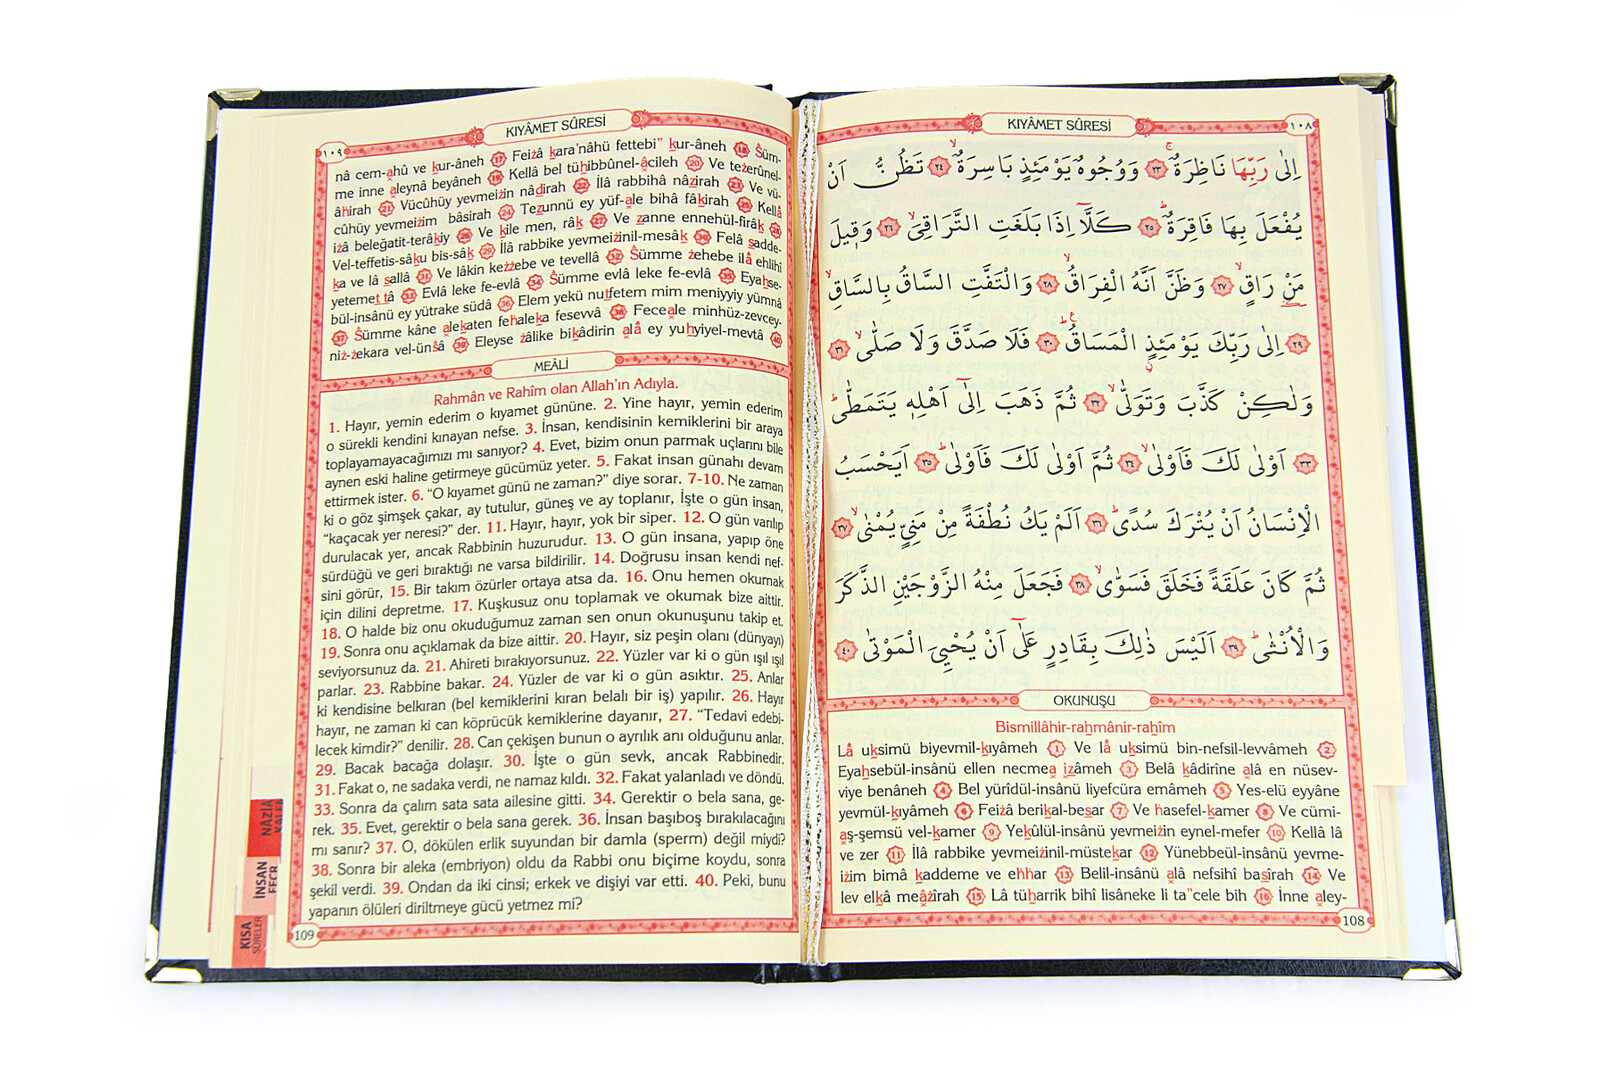 KIYÂMET SÛRESİ
١٠٨
اِلٰى رَبِّهَا نَاظِرَةٌۚ ﴿٢٣﴾ وَوُجُوهٌ يَوْمَئِذٍ بَاسِرَةٌۙ ﴿٢٤﴾ تَظُنُّ اَنْ
يُفْعَلَ بِهَا فَاقِرَةٌۜ ﴿٢٥﴾ كَلَّٓا اِذَا بَلَغَتِ التَّرَاقِيَۙ ﴿٢٦﴾ وَقِيلَ
مَنْ رَاقٍۙ ﴿٢٧﴾ وَظَنَّ اَنَّهُ الْفِرَاقُۙ ﴿٢٨﴾ وَالْتَفَّتِ السَّاقُ بِالسَّاقِۙ
﴿٢٩﴾ اِلٰى رَبِّكَ يَوْمَئِذٍ الْمَسَاقُۜ ﴿٣٠﴾ فَلَا صَدَّقَ وَلَا صَلّٰىۙ ﴿٣١﴾
وَلٰكِنْ كَذَّبَ وَتَوَلّٰىۙ ﴿٣٢﴾ ثُمَّ ذَهَبَ اِلٰٓى اَهْلِهِ يَتَمَطّٰىۜ
﴿٣٣﴾ اَوْلٰى لَكَ فَاَوْلٰىۙ ﴿٣٤﴾ ثُمَّ اَوْلٰى لَكَ فَاَوْلٰىۜ ﴿٣٥﴾ اَيَحْسَبُ
الْاِنْسَانُ اَنْ يُتْرَكَ سُدًىۜ ﴿٣٦﴾ اَلَمْ يَكُ نُطْفَةً مِنْ مَنِيٍّ يُمْنٰىۙ ﴿٣٧﴾
ثُمَّ كَانَ عَلَقَةً فَخَلَقَ فَسَوّٰىۙ ﴿٣٨﴾ فَجَعَلَ مِنْهُ الزَّوْجَيْنِ الذَّكَرَ
وَالْاُنْثٰىۜ ﴿٣٩﴾ اَلَيْسَ ذٰلِكَ بِقَادِرٍ عَلٰٓى اَنْ يُحْيِيَ الْمَوْتٰى ﴿٤٠﴾
OKUNUŞU
Bismillâhir-rahmânir-rahîm
Lâ uksimü biyevmil-kıyâmeh 1 Ve lâ uksimü bin-nefsil-levvâmeh 2
Eyahsebül-insânü ellen necmea izâmeh 3 Belâ kâdirîne alâ en nüsev-
viye benâneh 4 Bel yürîdül-insânü liyefcüra emâmeh 5 Yes-elü eyyâne
yevmül-kıyâmeh 6 Feiżâ berikal-besar 7 Ve hasefel-kamer 8 Ve cümi-
aş-şemsü vel-kamer 9 Yekûlül-insânü yevmeiżin eynel-mefer 10 Kellâ lâ
ve zer 11 İlâ rabbike yevmeiżinil-müstekar 12 Yünebbeül-insânü yevme-
iżim bimâ kaddeme ve ehhar 13 Belil-insânü alâ nefsihî basîrah 14 Ve
lev elkâ meâżîrah 15 Lâ tüharrik bihî lisâneke li ta"cele bih 16 İnne aley-
108
KIYÂMET SÛRESİ
١٠٩
nâ cem-ahû ve kur-âneh 17 Feiżâ kara'nâhü fettebi" kur-âneh 18 Śüm-
me inne aleynâ beyâneh 19 Kellâ bel tühibbûnel-âcileh 20 Ve teżerûnel-
âhirah 21 Vücûhüy yevmeiżin nâdirah 22 İlâ rabbihâ nâzirah 23 Ve vü-
cûhüy yevmeiżim bâsirah 24 Tezunnü ey yüf-ale bihâ fâkirah 25 Kellâ
iżâ beleğatit-terâkiy 26 Ve kile men, râk 27 Ve zanne ennehül-firâk 28
Vel-teffetis-sâku bis-sâk 29 İlâ rabbike yevmeiżinil-mesâk 30 Felâ sadde-
ka ve lâ sallâ 31 Ve lâkin keżżebe ve tevellâ 32 Śümme żehebe ilâ ehlihî
yetemettâ 33 Evlâ leke fe-evlâ 34 Śümme evlâ leke fe-evlâ 35 Eyahse-
bül-insânü ey yütrake südâ 36 Elem yekü nutfetem mim meniyyiy yümnâ
37 Śümme kâne alekaten fehaleka fesevvâ 38 Feceale minhüz-zevcey-
niż-żekara vel-ünśâ 39 Eleyse żâlike bikâdirin alâ ey yuhyiyel-mevtâ 40
MEÂLİ
Rahmân ve Rahîm olan Allah'ın Adıyla.
1. Hayır, yemin ederim o kıyamet gününe. 2. Yine hayır, yemin ederim
o sürekli kendini kınayan nefse. 3. İnsan, kendisinin kemiklerini bir araya
toplayamayacağımızı mı sanıyor? 4. Evet, bizim onun parmak uçlarını bile
aynen eski haline getirmeye gücümüz yeter. 5. Fakat insan günahı devam
ettirmek ister. 6. "O kıyamet günü ne zaman?" diye sorar. 7-10. Ne zaman
ki o göz şimşek çakar, ay tutulur, güneş ve ay toplanır, İşte o gün insan,
"kaçacak yer neresi?" der. 11. Hayır, hayır, yok bir siper. 12. O gün varılıp
durulacak yer, ancak Rabbinin huzurudur. 13. O gün insana, yapıp öne
sürdüğü ve geri bıraktığı ne varsa bildirilir. 14. Doğrusu insan kendi nef-
sini görür, 15. Bir takım özürler ortaya atsa da. 16. Onu hemen okumak
için dilini depretme. 17. Kuşkusuz onu toplamak ve okumak bize aittir.
18. O halde biz onu okuduğumuz zaman sen onun okunuşunu takip et.
19. Sonra onu açıklamak da bize aittir. 20. Hayır, siz peşin olanı (dünyayı)
seviyorsunuz da. 21. Ahireti bırakıyorsunuz. 22. Yüzler var ki o gün ışıl ışıl
parlar. 23. Rabbine bakar. 24. Yüzler de var ki o gün asıktır. 25. Anlar
ki kendisine belkıran (bel kemiklerini kıran belalı bir iş) yapılır. 26. Hayır
hayır, ne zaman ki can köprücük kemiklerine dayanır, 27. "Tedavi edebi-
lecek kimdir?" denilir. 28. Can çekişen bunun o ayrılık anı olduğunu anlar.
29. Bacak bacağa dolaşır. 30. İşte o gün sevk, ancak Rabbinedir.
31. Fakat o, ne sadaka verdi, ne namaz kıldı. 32. Fakat yalanladı ve döndü.
33. Sonra da çalım sata sata ailesine gitti. 34. Gerektir o bela sana, ge-
rek. 35. Evet, gerektir o bela sana gerek. 36. İnsan başıboş bırakılacağını
mı sanır? 37. O, dökülen erlik suyundan bir damla (sperm) değil miydi?
38. Sonra bir aleka (embriyon) oldu da Rabbi onu biçime koydu, sonra
şekil verdi. 39. Ondan da iki cinsi; erkek ve dişiyi var etti. 40. Peki, bunu
yapanın ölüleri diriltmeye gücü yetmez mi?
109
İNSAN
FECR
KISA
SÛRELER